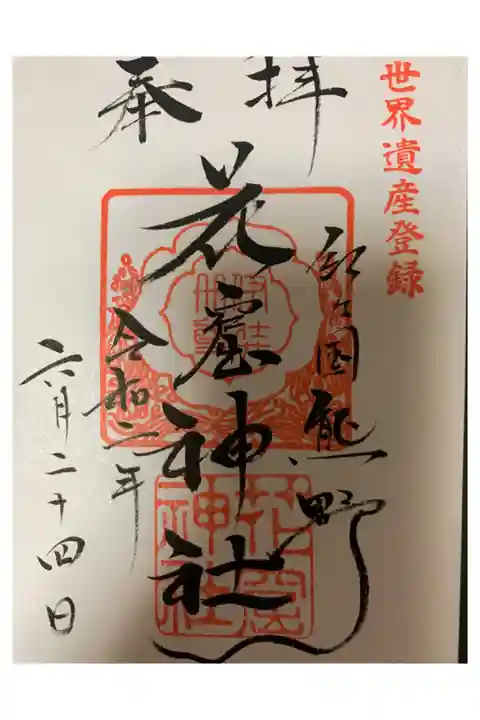 世界遺産登録
奉拝
紀之国熊野
花窟神社
令和二年
六月二十四日
花窟神社